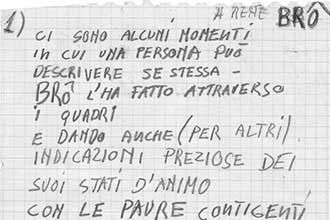 A RENE BRÔ
1) CI SONO ALCUNI MOMENTI
in CUI UNA PERSONA PUÓ
DESCRIVERE SE STESSA -
BRÔ L'HA FATTO ATTRAVERSO
i QUADRI
E DANDO ANCHE (PER ALTRI)
INDICAZIONI PREZIOSE DEI
SUOI STATI D'ANIMO
CON LE PAURE CONTIGENTI